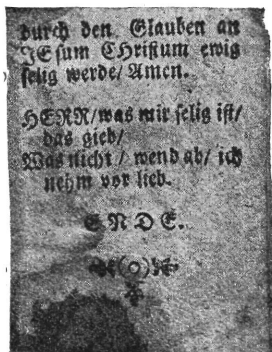 durch den Glauben an
JEsum CHristum ewig
selig werde/ Amen.
HERR/ was mir selig ist/
das gieb/
Was nicht/ wend ab/ ich
nehm vor lieb.
ENDE.